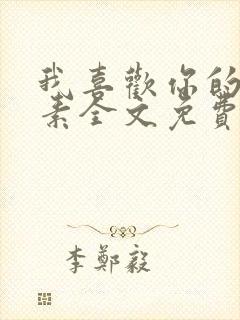 我喜歡你的
素全文免費
李鄭毅